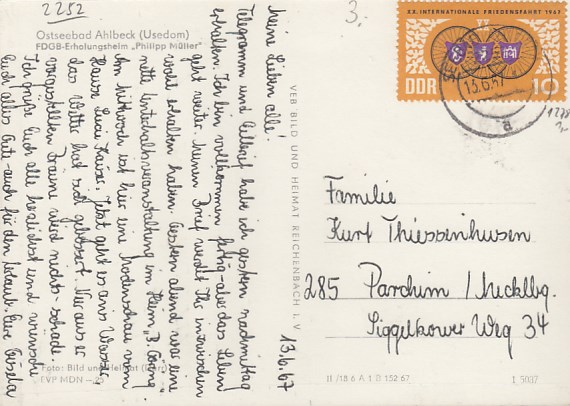 2252
3.
Ostseebad Ahlbeck (Usedom)
FDGB-Erholungsheim „Philipp Müller"
XX. INTERNATIONALE FRIEDENSFAHRT 1967
DDR 10
13.6.67
a
13.6.67
Meine Lieben alle!
Telegramm und Eilbrief habe ich gestern nachmittag
erhalten. Ich bin vollkommen fertig - aber das Leben
geht weiter. Meinen Brief werdet Ihr inzwischen
wohl erhalten haben. Gestern abend war eine
nette Unterhaltungsveranstaltung im Heim „B. Göring"
Am Mittwoch ist hier eine Modenschau vom
Hause Luci Kaiser. Jetzt geht es ans Wasser
das Wetter hat sich gebessert. Nur aus der
vorgestellten Bräune wird nichts - schade.
Ich grüße Euch alle herzlichst und wünsche
Euch alles Gute - auch für den Urlaub. Eure Gisela
VEB BILD UND HEIMAT REICHENBACH I. V.
Familie
Kurt Thiessenhusen
285 Parchim / Mecklbg.
Siggelkower Weg 34
Foto: Bild und Heimat
EVP MDN –,25
II/18/6 A 1 B 152 67
1 5007